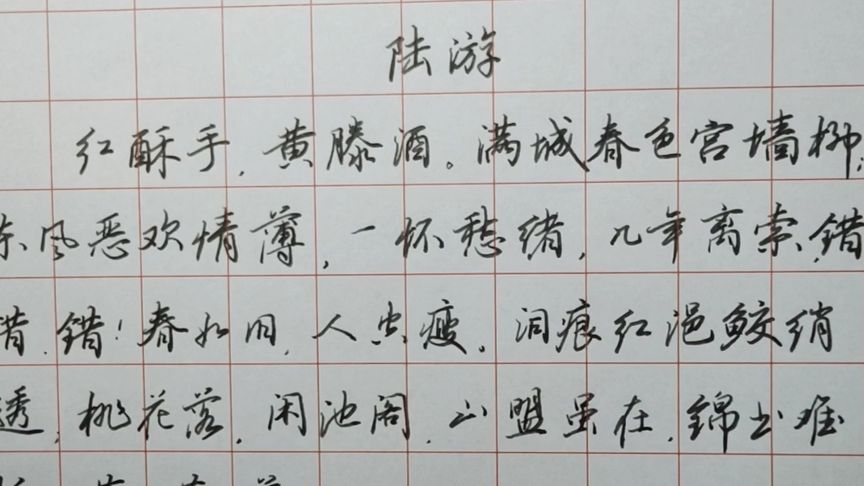 陆游
红酥手,黄滕酒。满城春色宫墙柳,
东风恶欢情薄,一怀愁绪,几年离索,错
错,错!春如旧,人空瘦。泪痕红浥鲛绡
透,桃花落,闲池阁,山盟虽在,锦书难